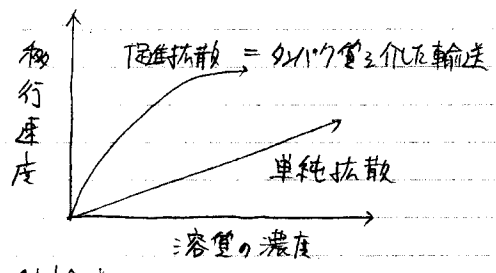 移行速度
促進拡散 = タンパク質を介した輸送
単純拡散
溶質の濃度